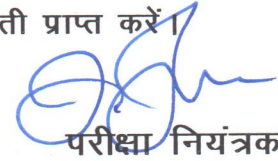 ती प्राप्त करें।
परीक्षा नियंत्रक